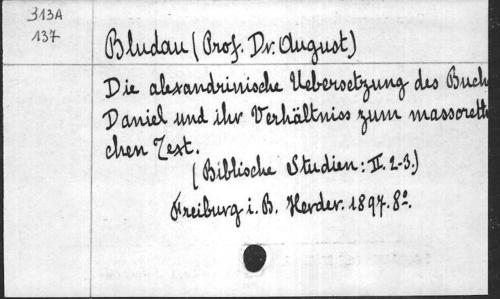 313A
137
Bludau (Prof. Dr. August)
Die alexandrinische Uebersetzung des Buch
Daniel und ihr Verhältniss zum massoreth
chen Text.
(Biblische Studien: II. 2-3.)
Freiburg i. B. Herder. 1897. 8º.